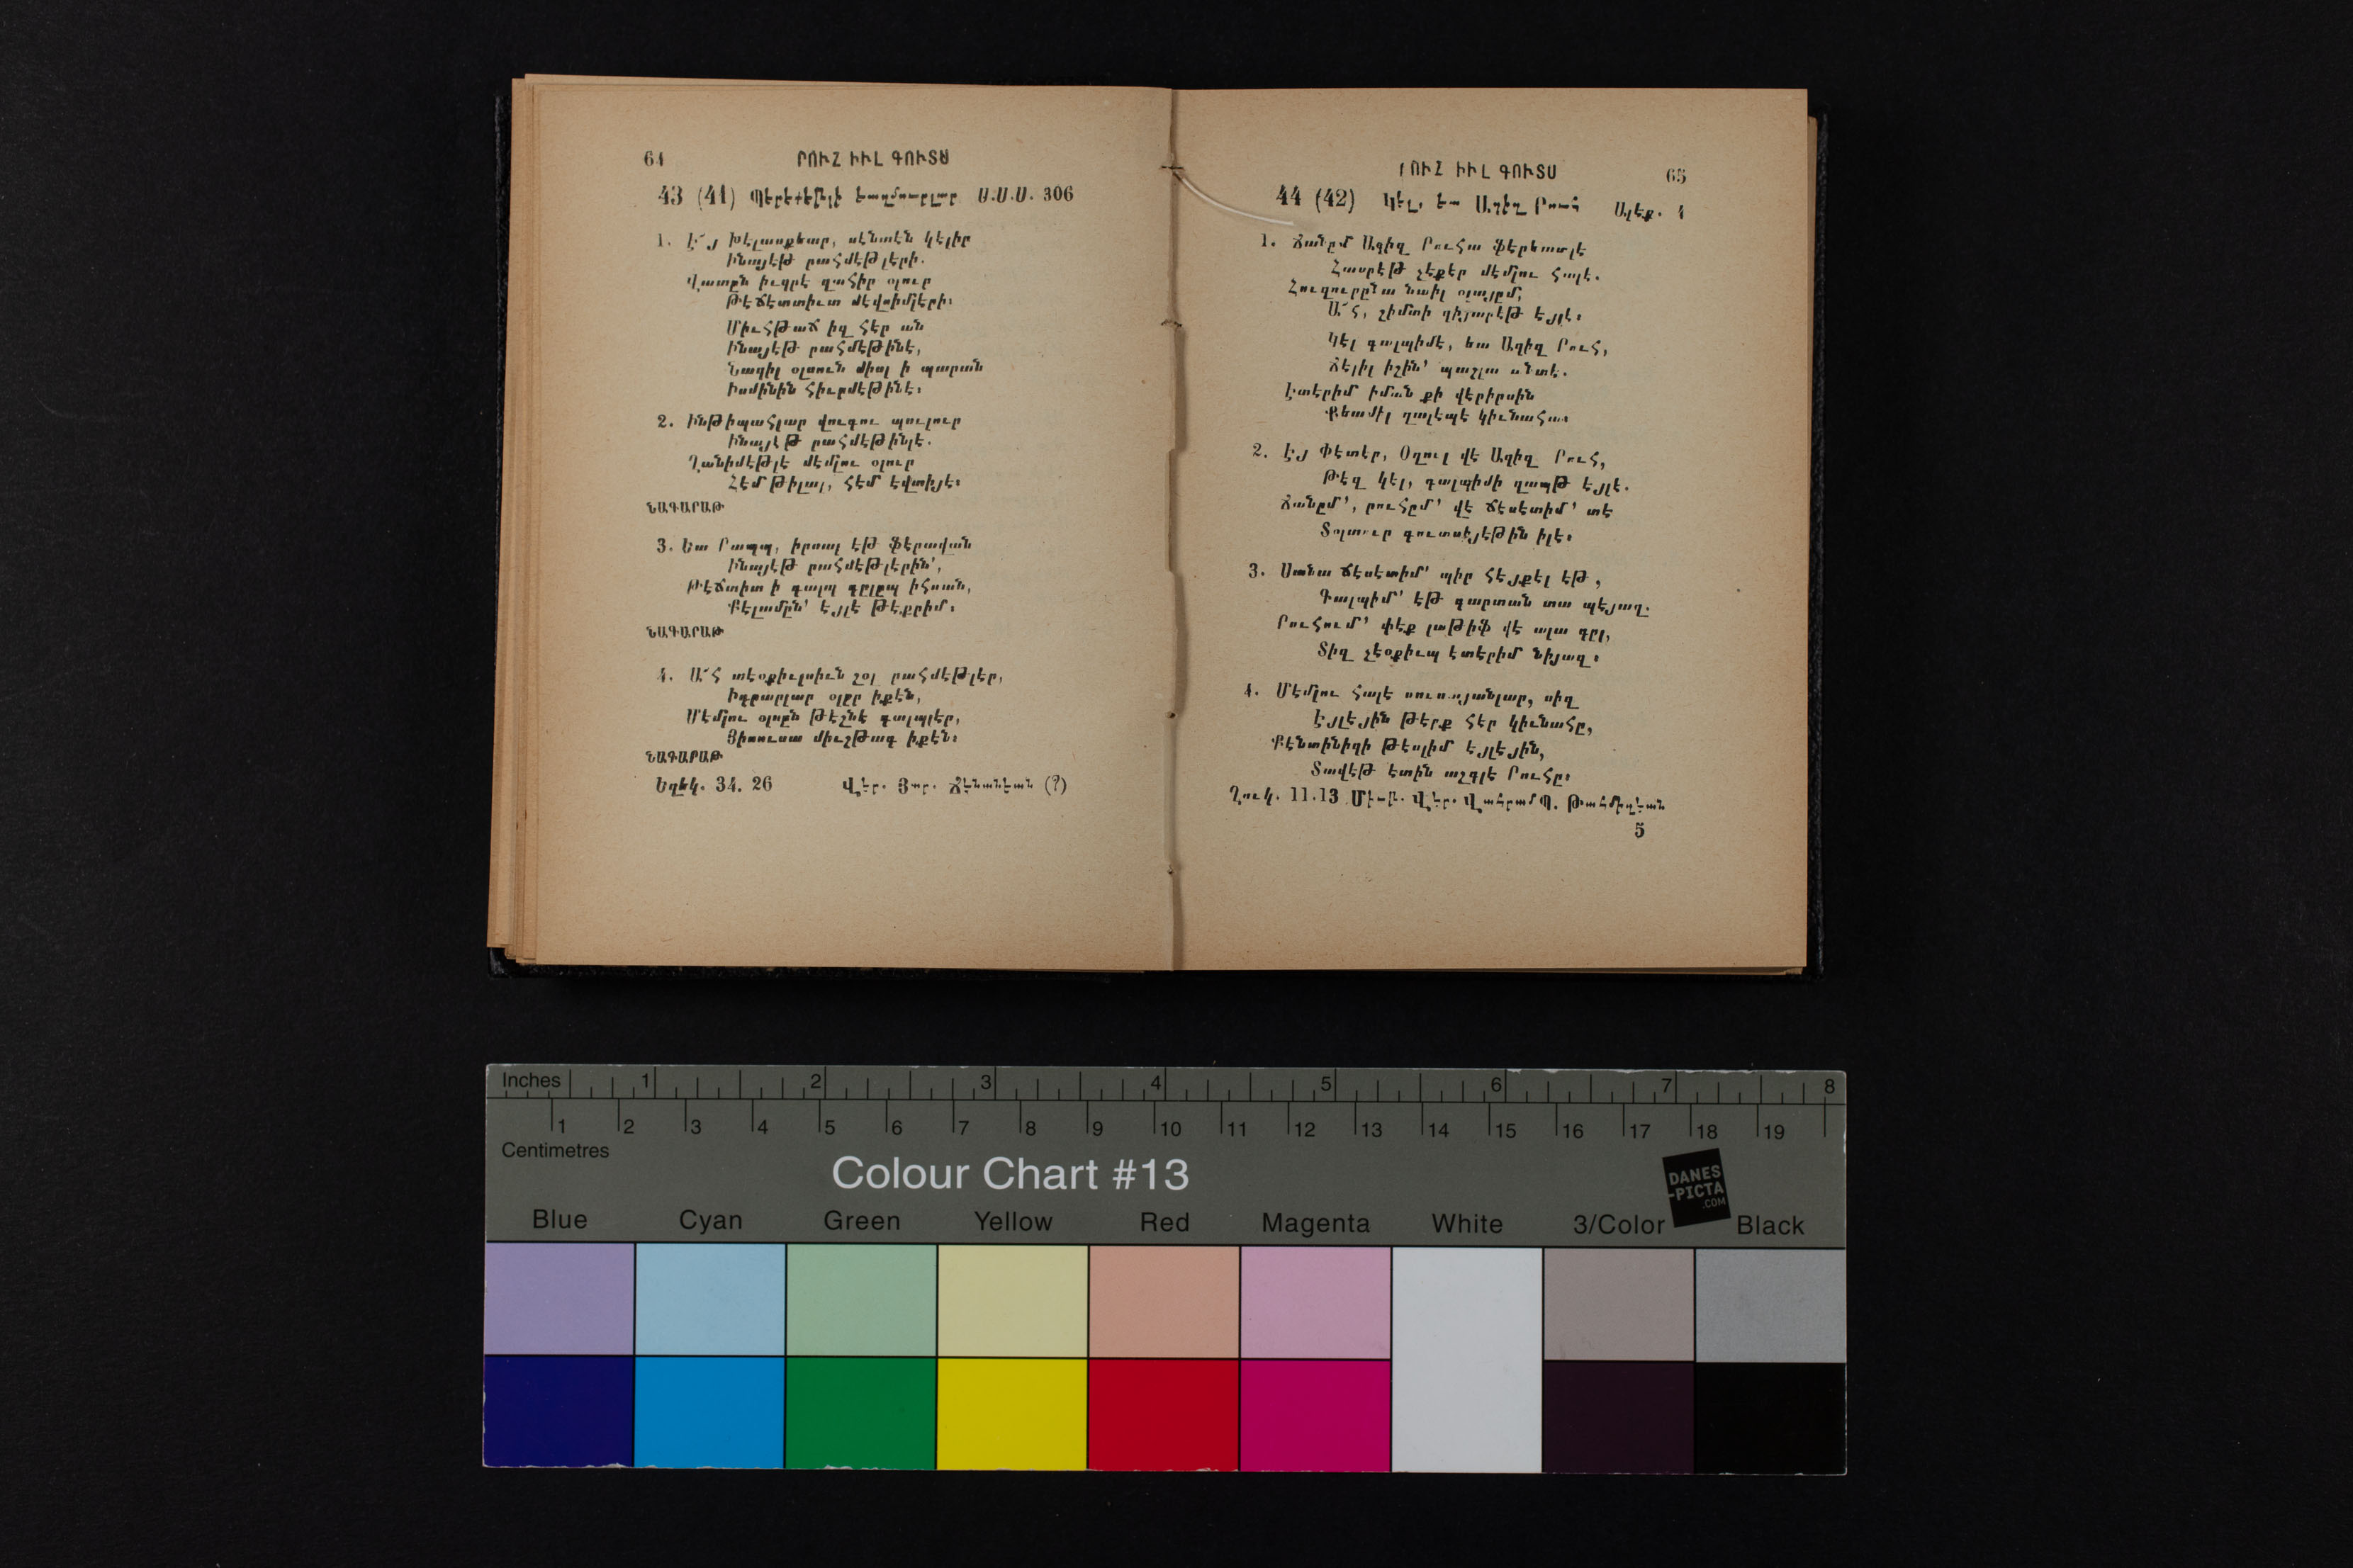 64
ՐՈՒՀ ԻՒԼ ԳՈՒՏՍ
43 (41) Պէրէքեթլի եաղմուրլար Ս.Ս.Ս. 306
1. Է՜յ Խէլասքեար, սէնտէն կէլիր
Ինայէթ րահմէթլերի.
Վատըն իւզրէ զահիր օլուր
Թէճէտտիւտ մէվսիմլերի։
Միւհթաճ իզ հէր ան
Ինայէթ րահմէթինէ,
Նազիլ օլսուն միսլ ի պարան
Իսմինին հիւրմէթինէ։
2. Ինթիպահլար վուգու պուլուր
Ինայէթ րահմէթինլէ.
Ղանիմէթլէ մէմլու օլուր
Հէմ թիլալ, հէմ էվտիյէ։
ՆԱԳԱՐԱԹ
3. Եա Րապպ, իրսալ էթ ֆէրավան
Ինայէթ րահմէթլերին՛,
Թէճտիտ ի գալպ գըլըպ իհսան,
Քէլամըն՛ էյլէ թէքրիմ։
ՆԱԳԱՐԱԹ
4. Ա՜հ տէօքիւլսիւն շօլ րահմէթլէր,
Իգրարլար օլըր իքէն,
Մէմլու օլսըն թէշնէ գալպլէր,
Յիսուսա միւշթագ իքէն։
ՆԱԳԱՐԱԹ
Եզեկ. 34. 26 Վեր. Յար. Ճէնանեան (?)
ՐՈՒՀ ԻՒԼ ԳՈՒՏՍ
65
44 (42) Կէլ, եա Ազիզ Րուհ Ալէք. 4
1. Ճանըմ Ազիզ Րուհա ֆէրեատլէ
Հասրէթ չէքեր մէմլու հալէ.
Հուզուրընա նաիլ օլայըմ,
Ա՜հ, շիմտի զիյարէթ էյլէ։
Կէլ գալպիմէ, եա Ազիզ Րուհ,
Ճէլիլ իշին՛ պաշլա անտէ.
Էտէրիմ իման քի վէրիրսին
Քեամիլ ղալէպէ կիւնահա։
2. Էյ Փէտէր, Օղուլ վէ Ազիզ Րուհ,
Թէզ կէլ, գալպիմի զապթ էյլէ.
Ճանըմ՛, րուհըմ՛ վէ ճէսէտիմ՛ տէ
Տօլտուր գուտսիյէթին իլէ։
3. Սանա ճէսէտիմ՛ պիր հէյքէլ էթ,
Գալպիմ՛ էթ գարտան տա պէյազ.
Րուհում՛ փէք լաթիֆ վէ ալա գըլ,
Տիզ չէօքիւպ էտէրիմ նիյազ։
4. Մէմլու հալէ սուսայանլար, սիզ
Էյլէյին թէրք հէր կիւնահը,
Քէնտինիզի թէսլիմ էյլէյին,
Տավէթ էտին աշգլէ Րուհը։
Ղուկ. 11.13 Վեր. Վահրամ Պ. Թահմիզեան
5
Inches 1 2 3 4 5 6 7 8
1 2 3 4 5 6 7 8 9 10 11 12 13 14 15 16 17 18 19
Centimetres
Colour Chart #13
DANES
-PICTA
.COM
Blue Cyan Green Yellow Red Magenta White 3/Color Black